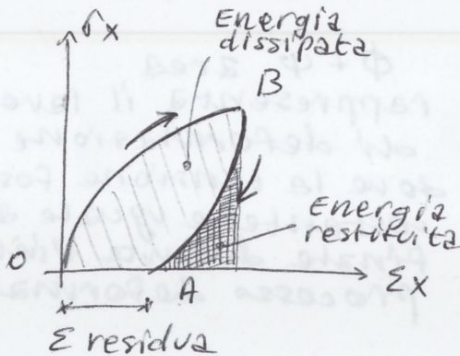 σx
Energia
dissipata
B
Energia
restituita
O
A
εx
ε residua